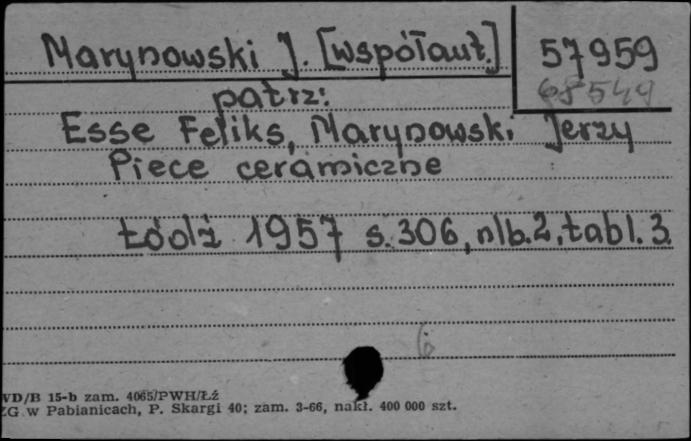 Marynowski J. [współaut.] 57959
68549
patrz:
Esse Feliks, Marynowski Jerzy
Piece ceramiczne
Łódź 1957 s. 306, nlb. 2, tabl. 3.
6
VD/B 15-b zam. 4065/PWH/Łź
ZG w Pabianicach, P. Skargi 40; zam. 3-66, nakł. 400 000 szt.